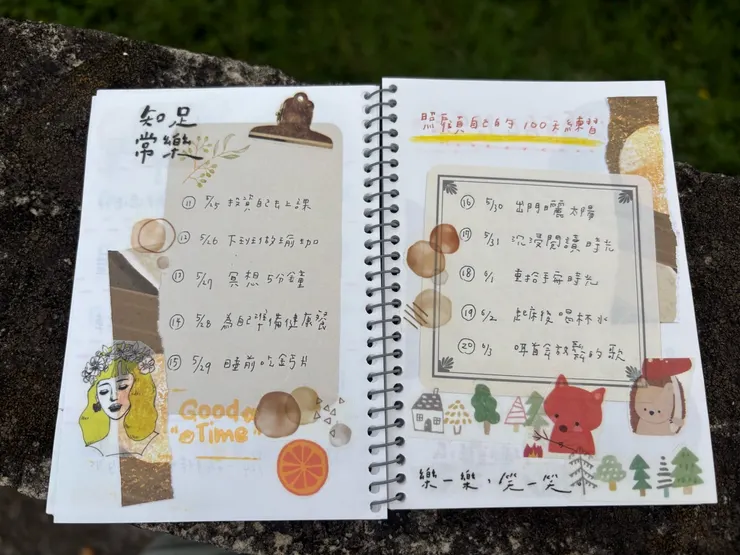 知足
常樂
⑪ 5/25 投資自己去上課
⑫ 5/26 下班做瑜珈
⑬ 5/27 冥想5分鐘
⑭ 5/28 為自己準備健康餐
⑮ 5/29 睡前吃鈣片
Good
Time
照顧自己的100天練習
⑯ 5/30 出門曬太陽
⑰ 5/31 沉浸閱讀時光
⑱ 6/1 手帳時光
⑲ 6/2 起床後喝杯水
⑳ 6/3 的歌
樂一樂，笑一笑